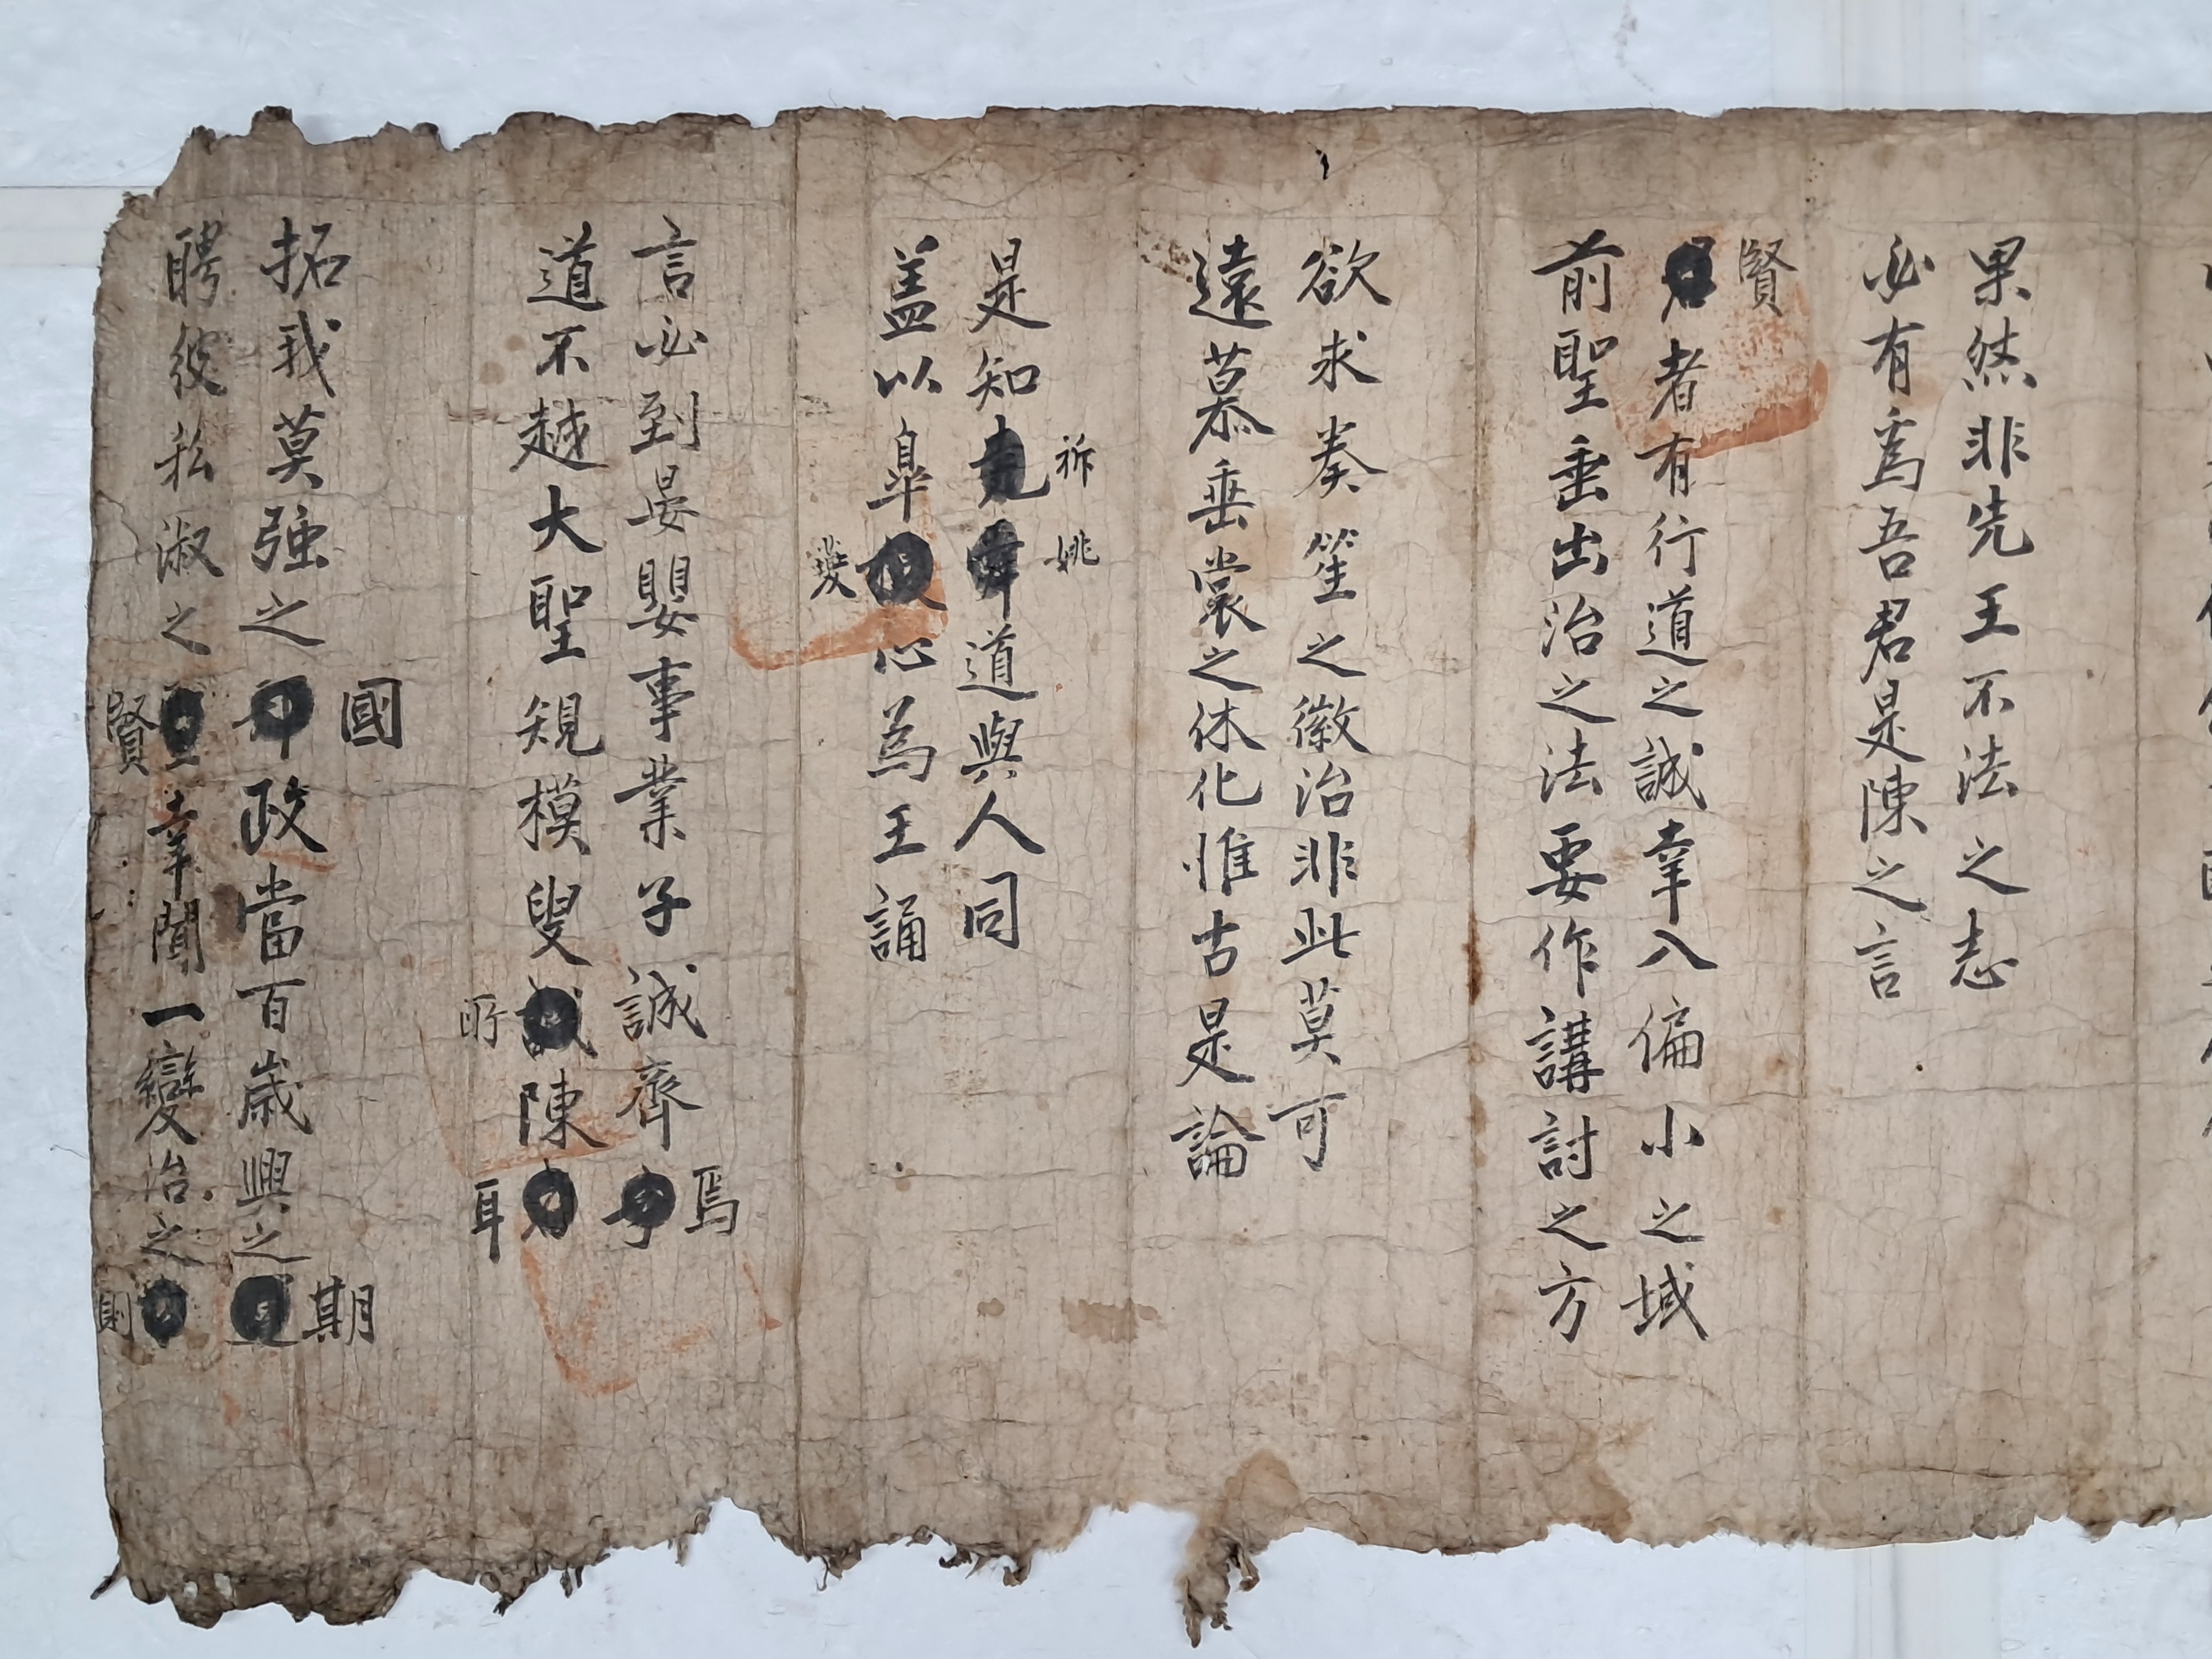 果然非先王不法之志
必有爲吾君是陳之言
賢
者有行道之誠幸入偏小之域
前聖垂出治之法要作講討之方
欲求奏笙之徽治非此莫可
遠慕垂裳之休化惟古是論
祈 姚
是知堯舜道與人同
盖以臯心爲王誦
夔
言必到晏嬰事業子誠齊焉
道不越大聖規模叟所陳耳
國 期
拓我莫强之政當百歲興之
聘彼私淑之幸聞一變治之
賢 則